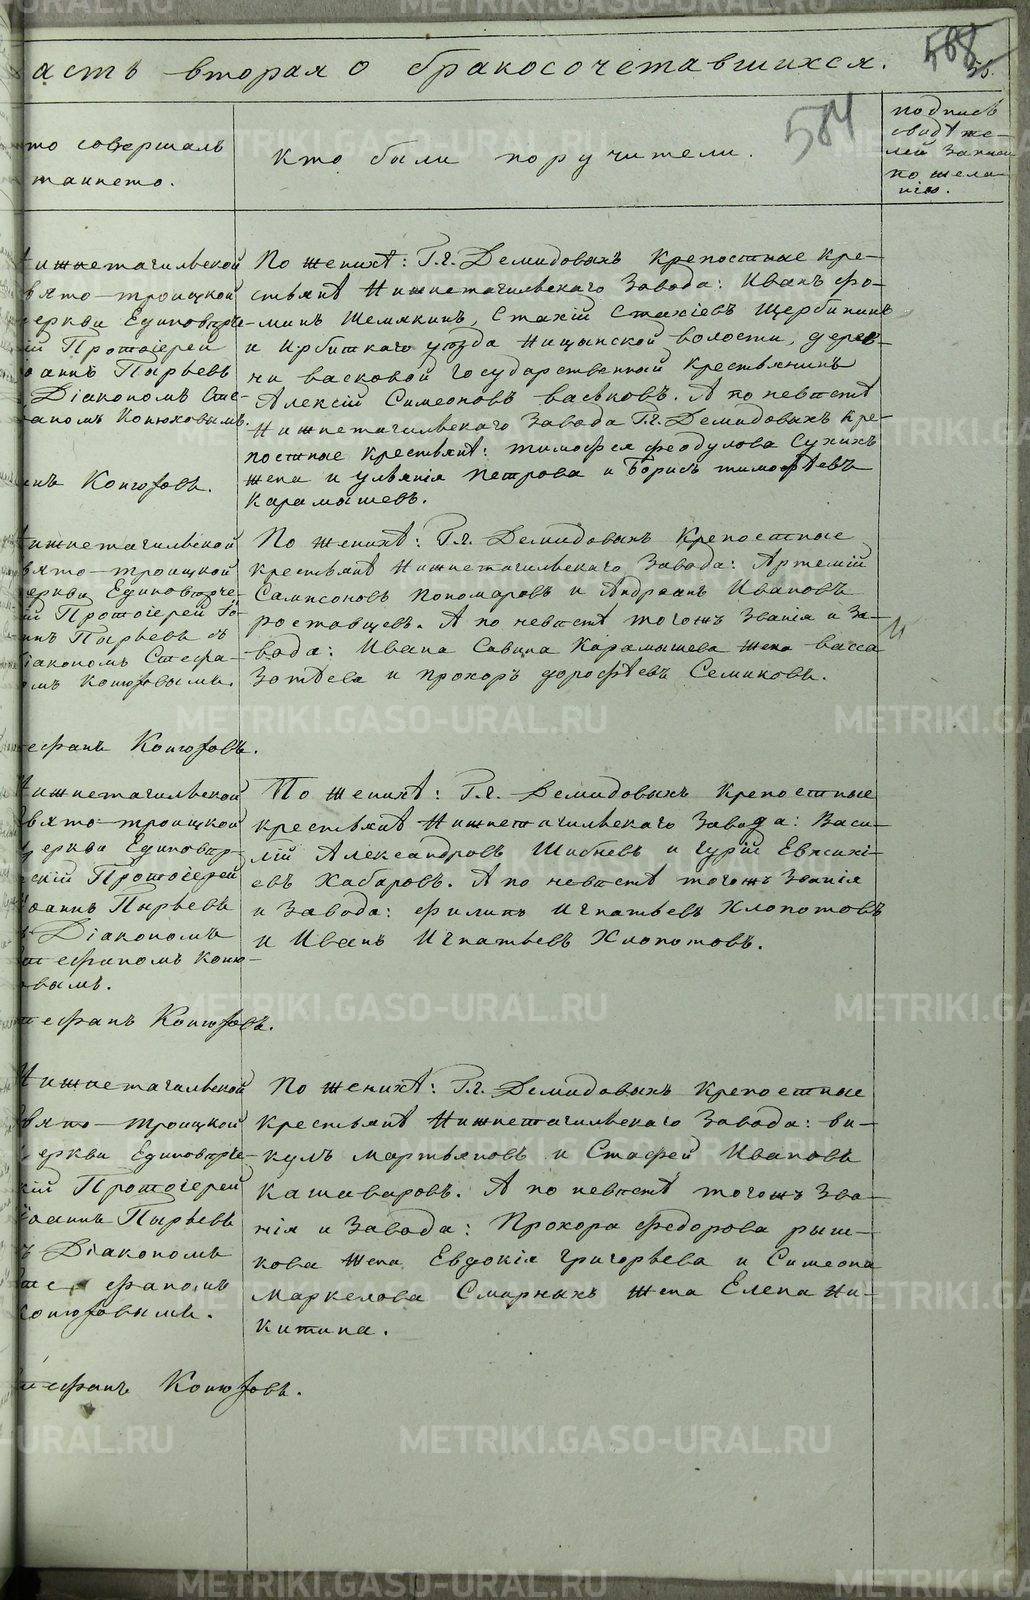 асть вторая о бракосочетавшихся.
568
55.
584
то совершалъ
таинство.
Кто были поручители.
подписъ
свидѣте-
лей записи
по жела-
нію.
Нижнетагильской
вято-троицкой
еркви Единовѣрче-
ій Протоіерей
оаннъ Пырьевъ
Діакономъ Сте-
аномъ Конюховымъ.
анъ Конюховъ.
По женихѣ: Г.г. Демидовыхъ крепостные кре-
стьянѣ Нижнетагильскаго Завода: Иванъ фо-
минъ Шемякинъ, Стахій Стахіевъ Щербининъ
и Ирбитскаго уѣзда Ницынской волости, дерев-
ни васковой государственный Крестьянинъ
Алексій Симеоновъ васьковъ. А по невѣстѣ
Нижнетагильскаго Завода Г.г. Демидовыхъ кре-
постные Крестьянѣ: тимофея феодулова Сухихъ
жена и Ульянія Петрова и Борисъ тимофѣевъ
Карамышевъ.
Нижнетагильской
вято-троицкой
еркви Единовѣрче-
ій Протоіерей Іо-
ннъ Пырьевъ съ
іакономъ Стефа-
омъ Конюховымъ.
тефанъ Конюховъ.
По женихѣ: Г.г. Демидовыхъ Крепостные
крестьянѣ Нижнетагильскаго Завода: Артемій
Сампсоновъ Пономаровъ и Андреанъ Ивановъ
ростовцевъ. А по невѣстѣ тогожъ Званія и За-
вода: Ивана Савина Карамышева жена васса
Зотѣева и прохоръ дорофѣевъ Семиковъ.
Нижнетагильской
вято-троицкой
церкви Единовѣр-
скій Протоіерей
Іоаннъ Пырьевъ
Діакономъ
тефаномъ Коню-
овымъ.
тефанъ Конюховъ.
По женихѣ: Г.г. Демидовыхъ крепостные
крестьянѣ Нижнетагильскаго Завода: Васи-
лій Александровъ Шибневъ и гурій Евясихі-
евъ Хабаровъ. А по невѣстѣ тогожъ Званія
и Завода: филипъ Игнатьевъ Хлопотовъ
и Иванъ Игнатьевъ Хлопотовъ.
Нижнетагильской
вято-троицкой
еркви Единовѣрче-
кій Протоіерей
Іоаннъ Пырьевъ
ъ Діакономъ
те фаномъ
Конюховымъ.
тефанъ Конюховъ.
По женихѣ: Г.г. Демидовыхъ крепостные
крестьянѣ Нижнетагильскаго Завода: ви-
кулъ мартьяновъ и Стафей Ивановъ
кашаваровъ. А по невѣстѣ тогожъ зва-
нія и Завода: Прохора Федорова рыш-
кова жена Евдокія григорьева и Симеона
Маркелова Смирныхъ жена Елена Ни-
китина.